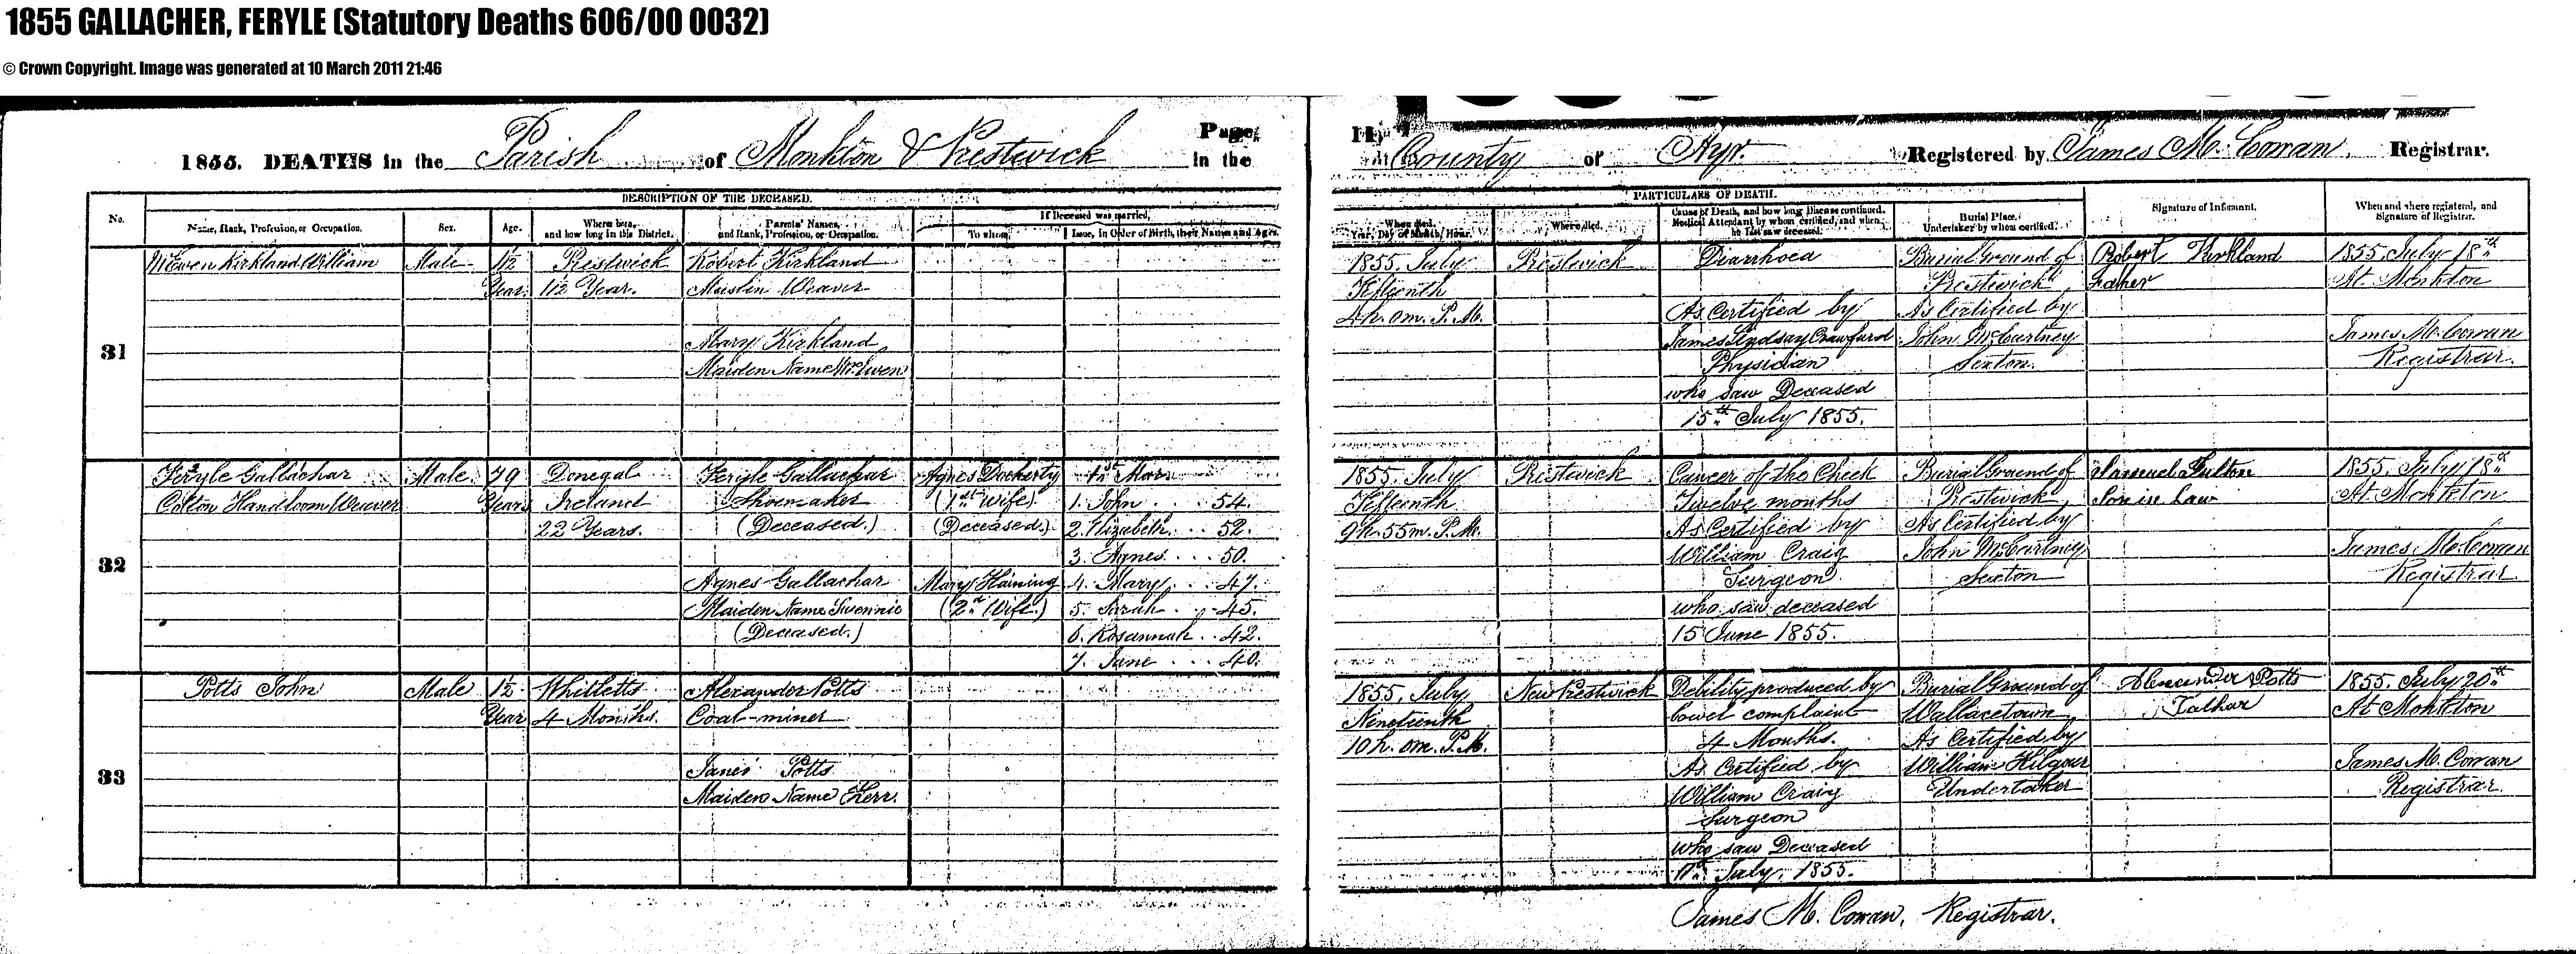 1855 GALLACHER, FERYLE (Statutory Deaths 606/00 0032)
© Crown Copyright. Image was generated at 10 March 2011 21:46
1855. DEATHS in the Parish of Monkton & Prestwick Page, in the
County of Ayr. Registered by James McCowan. Registrar.
DESCRIPTION OF THE DECEASED.
No.
Name, Rank, Profession, or Occupation.
Sex.
Age.
Where born, and how long in this District.
Parents' Names, and Rank, Profession, or Occupation.
If Deceased was married,
To whom,
Issue, in Order of Birth, their Names and Ages.
PARTICULARS OF DEATH.
When died. Year, Day of Month, Hour.
Where died.
Cause of Death, and how long Disease continued. Medical Attendant by whom certified, and when he last saw deceased.
Burial Place. Undertaker by whom certified.
Signature of Informant.
When and where registered, and Signature of Registrar.
31
McEwen Kirkland William
Male
1½
Year.
Prestwick
1½ Year.
Robert Kirkland
Muslin Weaver
Mary Kirkland
Maiden Name McEwen
1855. July
Fifteenth
4h. 0m. P.M.
Prestwick
Diarrhoea
As Certified by
James Lindsay Crawfurd
Physician
who saw Deceased
15th July 1855.
Burial Ground of
Prestwick
As Certified by
John McCartney
Sexton.
Robert Kirkland
Father
1855. July 18th
At Monkton
James McCowan
Registrar.
32
Feryle Gallachar
Cotton Handloom Weaver
Male
79
Years
Donegal
Ireland
22 Years.
Feryle Gallachar
Shoemaker
(Deceased.)
Agnes Gallachar
Maiden Name Swennie
(Deceased.)
Agnes Docherty
(1st Wife)
(Deceased.)
Mary Haining
(2nd Wife.)
1st Mar.
1. John . . 54.
2. Elizabeth . . 52.
3. Agnes . . . 50.
4. Mary . . . 47.
5. Sarah . . 45.
6. Rosannah . . 42.
7. Jane . . . 40.
1855. July
Fifteenth
9h. 55m. P.M.
Prestwick
Cancer of the Cheek
Twelve months
As Certified by
William Craig
Surgeon
who saw deceased
15 June 1855.
Burial Ground of
Prestwick
As Certified by
John McCartney
Sexton
Samuel Fulton
Son in Law
1855. July 18th
At Monkton
James McCowan
Registrar
33
Potts John
Male
1½
Year
Whitletts
4 Months.
Alexander Potts
Coal-miner
Janes Potts
Maiden Name Kerr.
1855. July
Nineteenth
10 h. 0m. P.M.
New Prestwick
Debility produced by
bowel complaint
4 Months.
As Certified by
William Craig
Surgeon
who saw Deceased
17th July. 1855.
Burial Ground of
Wallacetown
As Certified by
William Kilgour
Undertaker
Alexander Potts
Father
1855. July 20th
At Monkton
James McCowan
Registrar
James McCowan, Registrar.